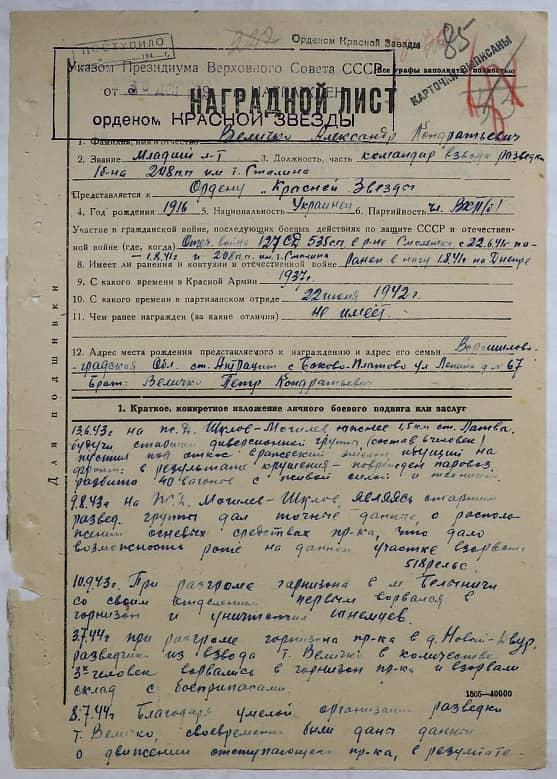 ПОСТУПИЛО
Орденом Красной Звезды
85
КАРТОЧКИ ВЫПИСАНЫ
Указом Президиума Верховного Совета СССР
Все графы заполнять полностью
от 30 дек 19
НАГРАДНОЙ ЛИСТ
орденом КРАСНОЙ ЗВЕЗДЫ
1. Фамилия, имя и отчество Величко Александр Кондратьевич
2. Звание Младший л-т 3. Должность, часть командир взвода разведки
10-на 208 пп им т. Сталина
Представляется к Ордену „Красной Звезды
4. Год рождения 1916 5. Национальность Украинец 6. Партийность чл. ВКП(б)
Участие в гражданской войне, последующих боевых действиях по защите СССР в отечествен-
ной войне (где, когда) Отеч. война 127 СД 535 сп в р-не Смоленск с 22.6.41 по
1.8.41г и 208 пп. им т. Сталина
8. Имеет ли ранения и контузии в отечественной войне Ранен в ногу 1.8.41 на Днепре
9. С какого времени в Красной Армии 1937г.
10. С какого времени в партизанском отряде 22 июня 1942г.
11. Чем ранее награжден (за какие отличия) не имеет
12. Адрес места рождения представляемого к награждению и адрес его семьи Ворошилов-
градская Обл. ст. Антрацит с Боково-Платово ул Ленина д № 67
Брат: Величко Петр Кондратьевич
Для подшивки
1. Краткое, конкретное изложение личного боевого подвига или заслуг
13.6.43г на ж.д. Шклов-Могилев южнее 1,5 км ст. Лотва.
будучи старшим диверсионной группы (состав 6 человек)
пустил под откос вражеский эшелон идущий на
фронт: в результате крушения - поврежден паровоз
разбито 40 вагонов с живой силой и техникой.
9.8.43г на Ж.Д. Могилев-Шклов, являясь старшим
развед. группы дал точные данные о располо-
жении огневых средствах пр-ка, что дало
возможность роте на данном участке взорвать
518 рельс.
10.9.43г. При разгроме гарнизона в м. Белыничи
со своим отделением первым ворвался в
гарнизон и уничтожил немцев.
3.7.44г при разгроме гарнизона пр-ка в д. Новой-Двур,
разведчики из взвода т. Величко в количестве
3х человек ворвались в гарнизон пр-ка и взорвали
склад с боеприпасами.
1505—40000
8.7.44г Благодаря умелой организации разведки
т. Величко, своевременно были даны данные
о движении отступающего пр-ка, в результате-